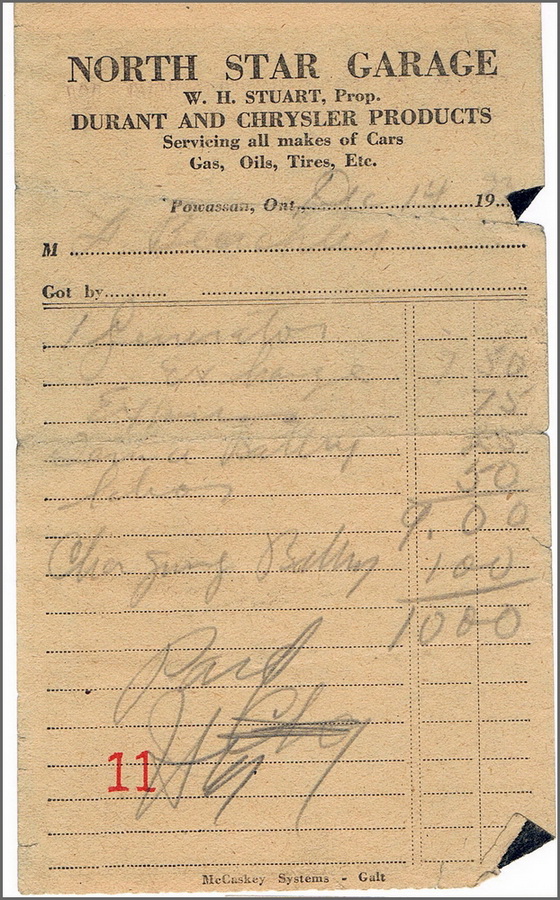 NORTH STAR GARAGE
W. H. STUART, Prop.
DURANT AND CHRYSLER PRODUCTS
Servicing all makes of Cars
Gas, Oils, Tires, Etc.
Powassan, Ont. Dec 14 19
M
Got by
1 Generator
Exchange 7 20
Express 75
Battery
Labor 50
9.00
Charging Battery 100
1000
Paid
11
McCaskey Systems - Galt